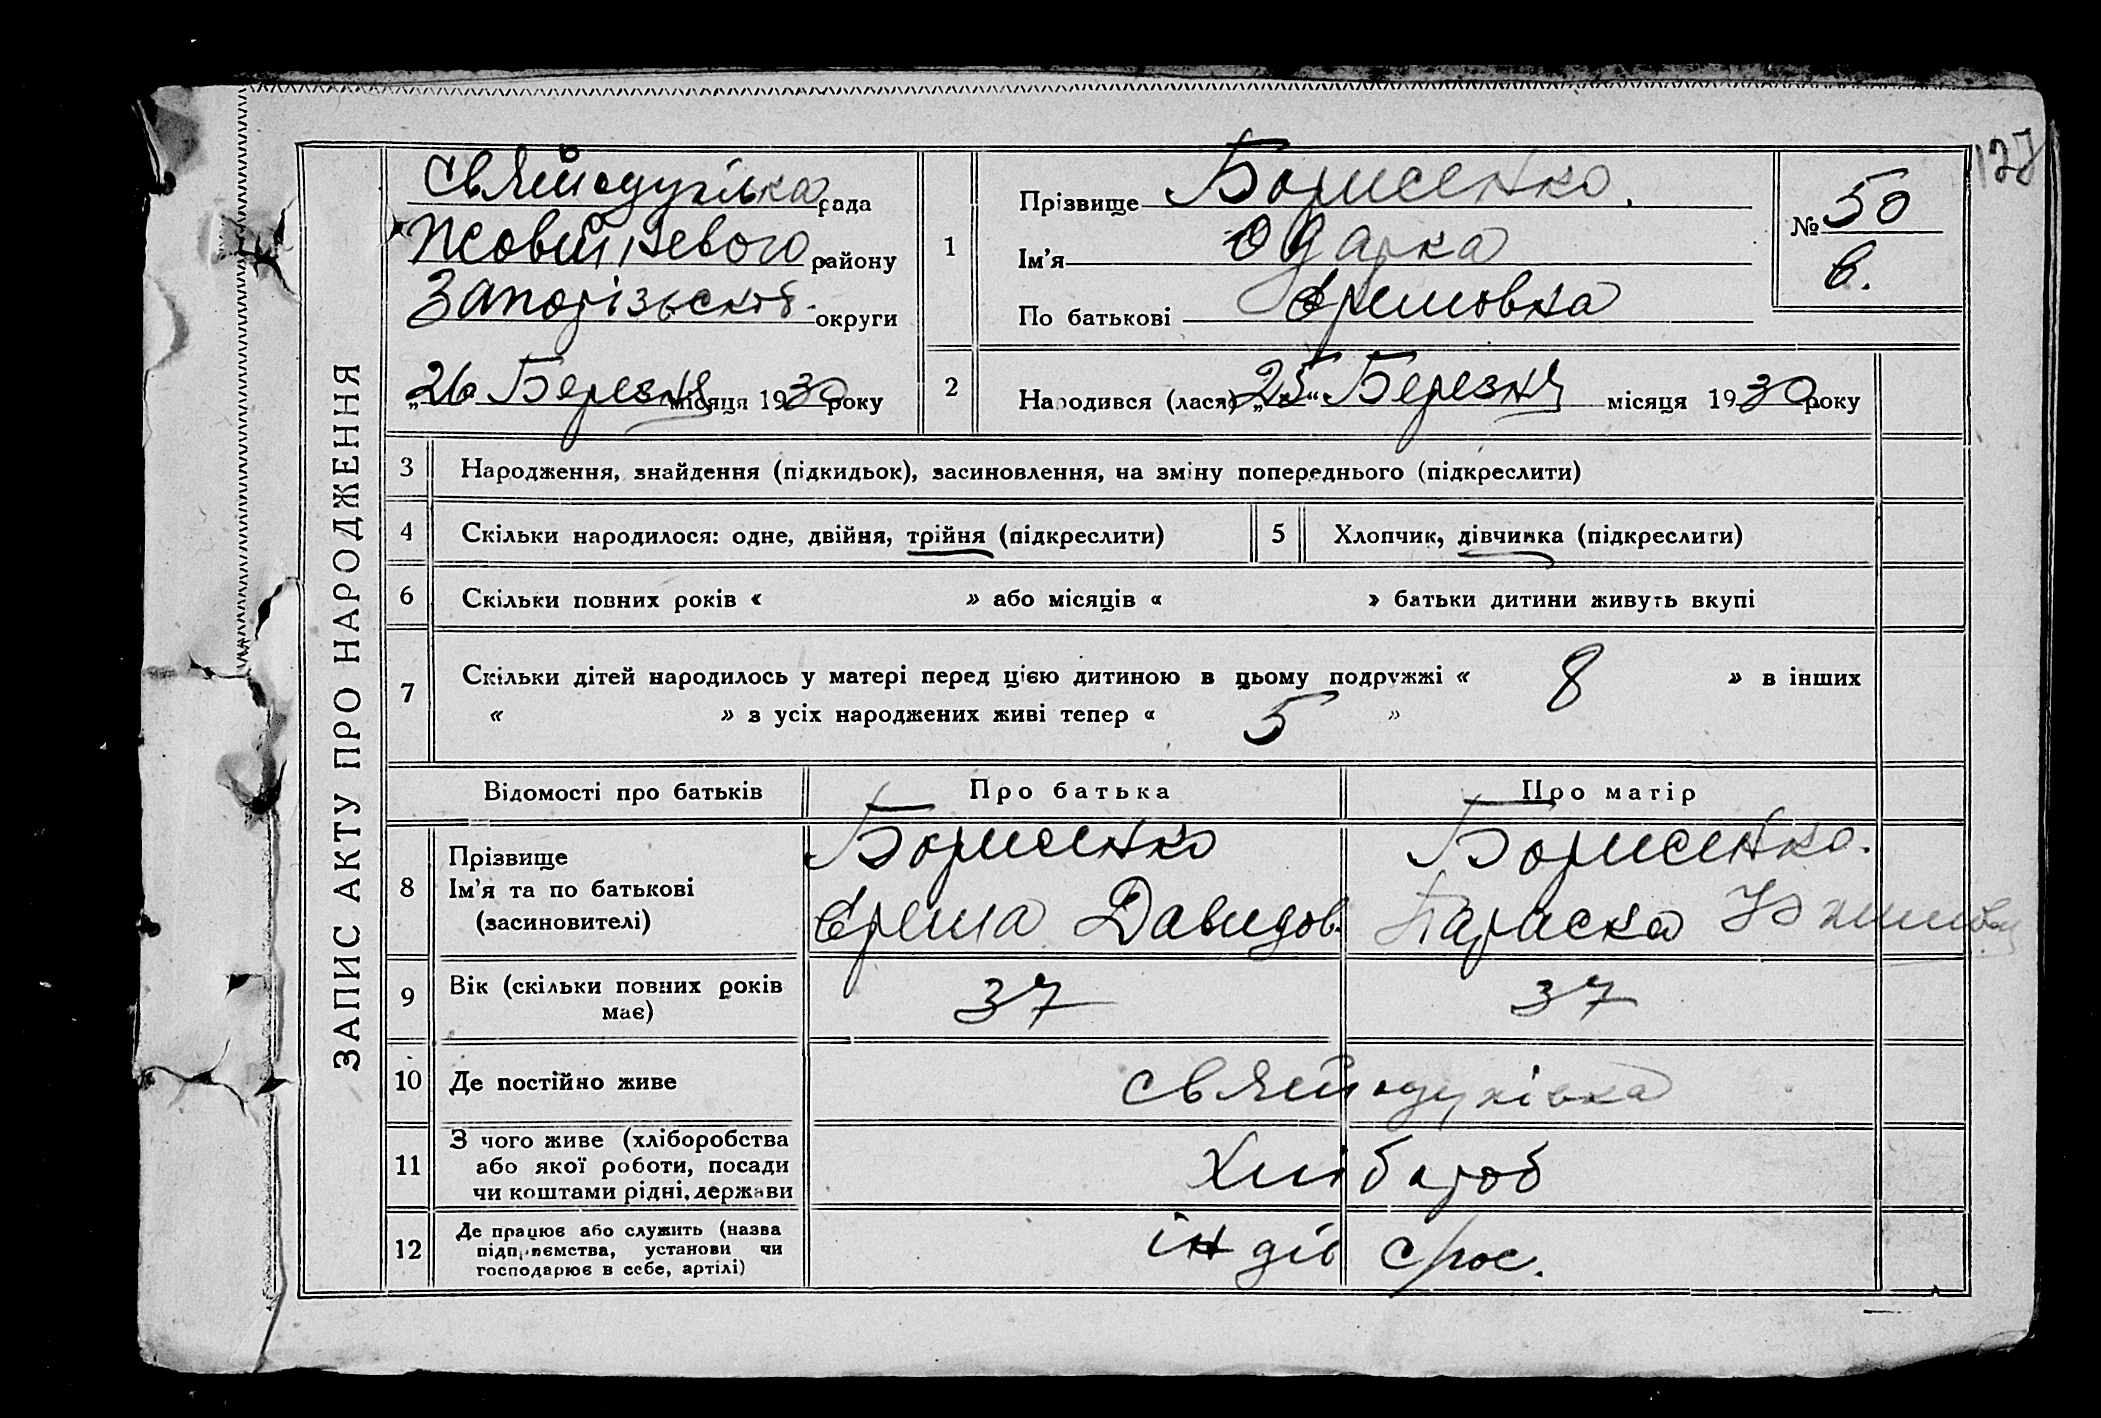 127
ЗАПИС АКТУ ПРО НАРОДЖЕННЯ
рада
Жовтневого району
Запорізької округи
„26 Березня місяця 1930 року
1
Прізвище Борисенко.
Ім'я Одарка
По батькові Яремовна
№ 50
в.
2 Народився (лася) „25“ Березня місяця 1930 року
3 Народження, знайдення (підкидьок), засиновлення, на зміну попереднього (підкреслити)
4 Скільки народилося: одне, двійня, трійня (підкреслити) 5 Хлопчик, дівчинка (підкреслити)
6 Скільки повних років « » або місяців « » батьки дитини живуть вкупі
7 Скільки дітей народилось у матері перед цією дитиною в цьому подружжі « 8 » в інших
« » з усіх народжених живі тепер « 5 »
Відомості про батьків Про батька Про матір
8 Прізвище Борисенко Борисенко.
Ім'я та по батькові Ярема Давидов. Параска
(засиновителі)
9 Вік (скільки повних років має) 37 37
10 Де постійно живе
11 З чого живе (хліборобства
або якої роботи, посади Хлібороб
чи коштами рідні, держави
12 Де працює або служить (назва
підприємства, установи чи індів
господарює в себе, артілі)